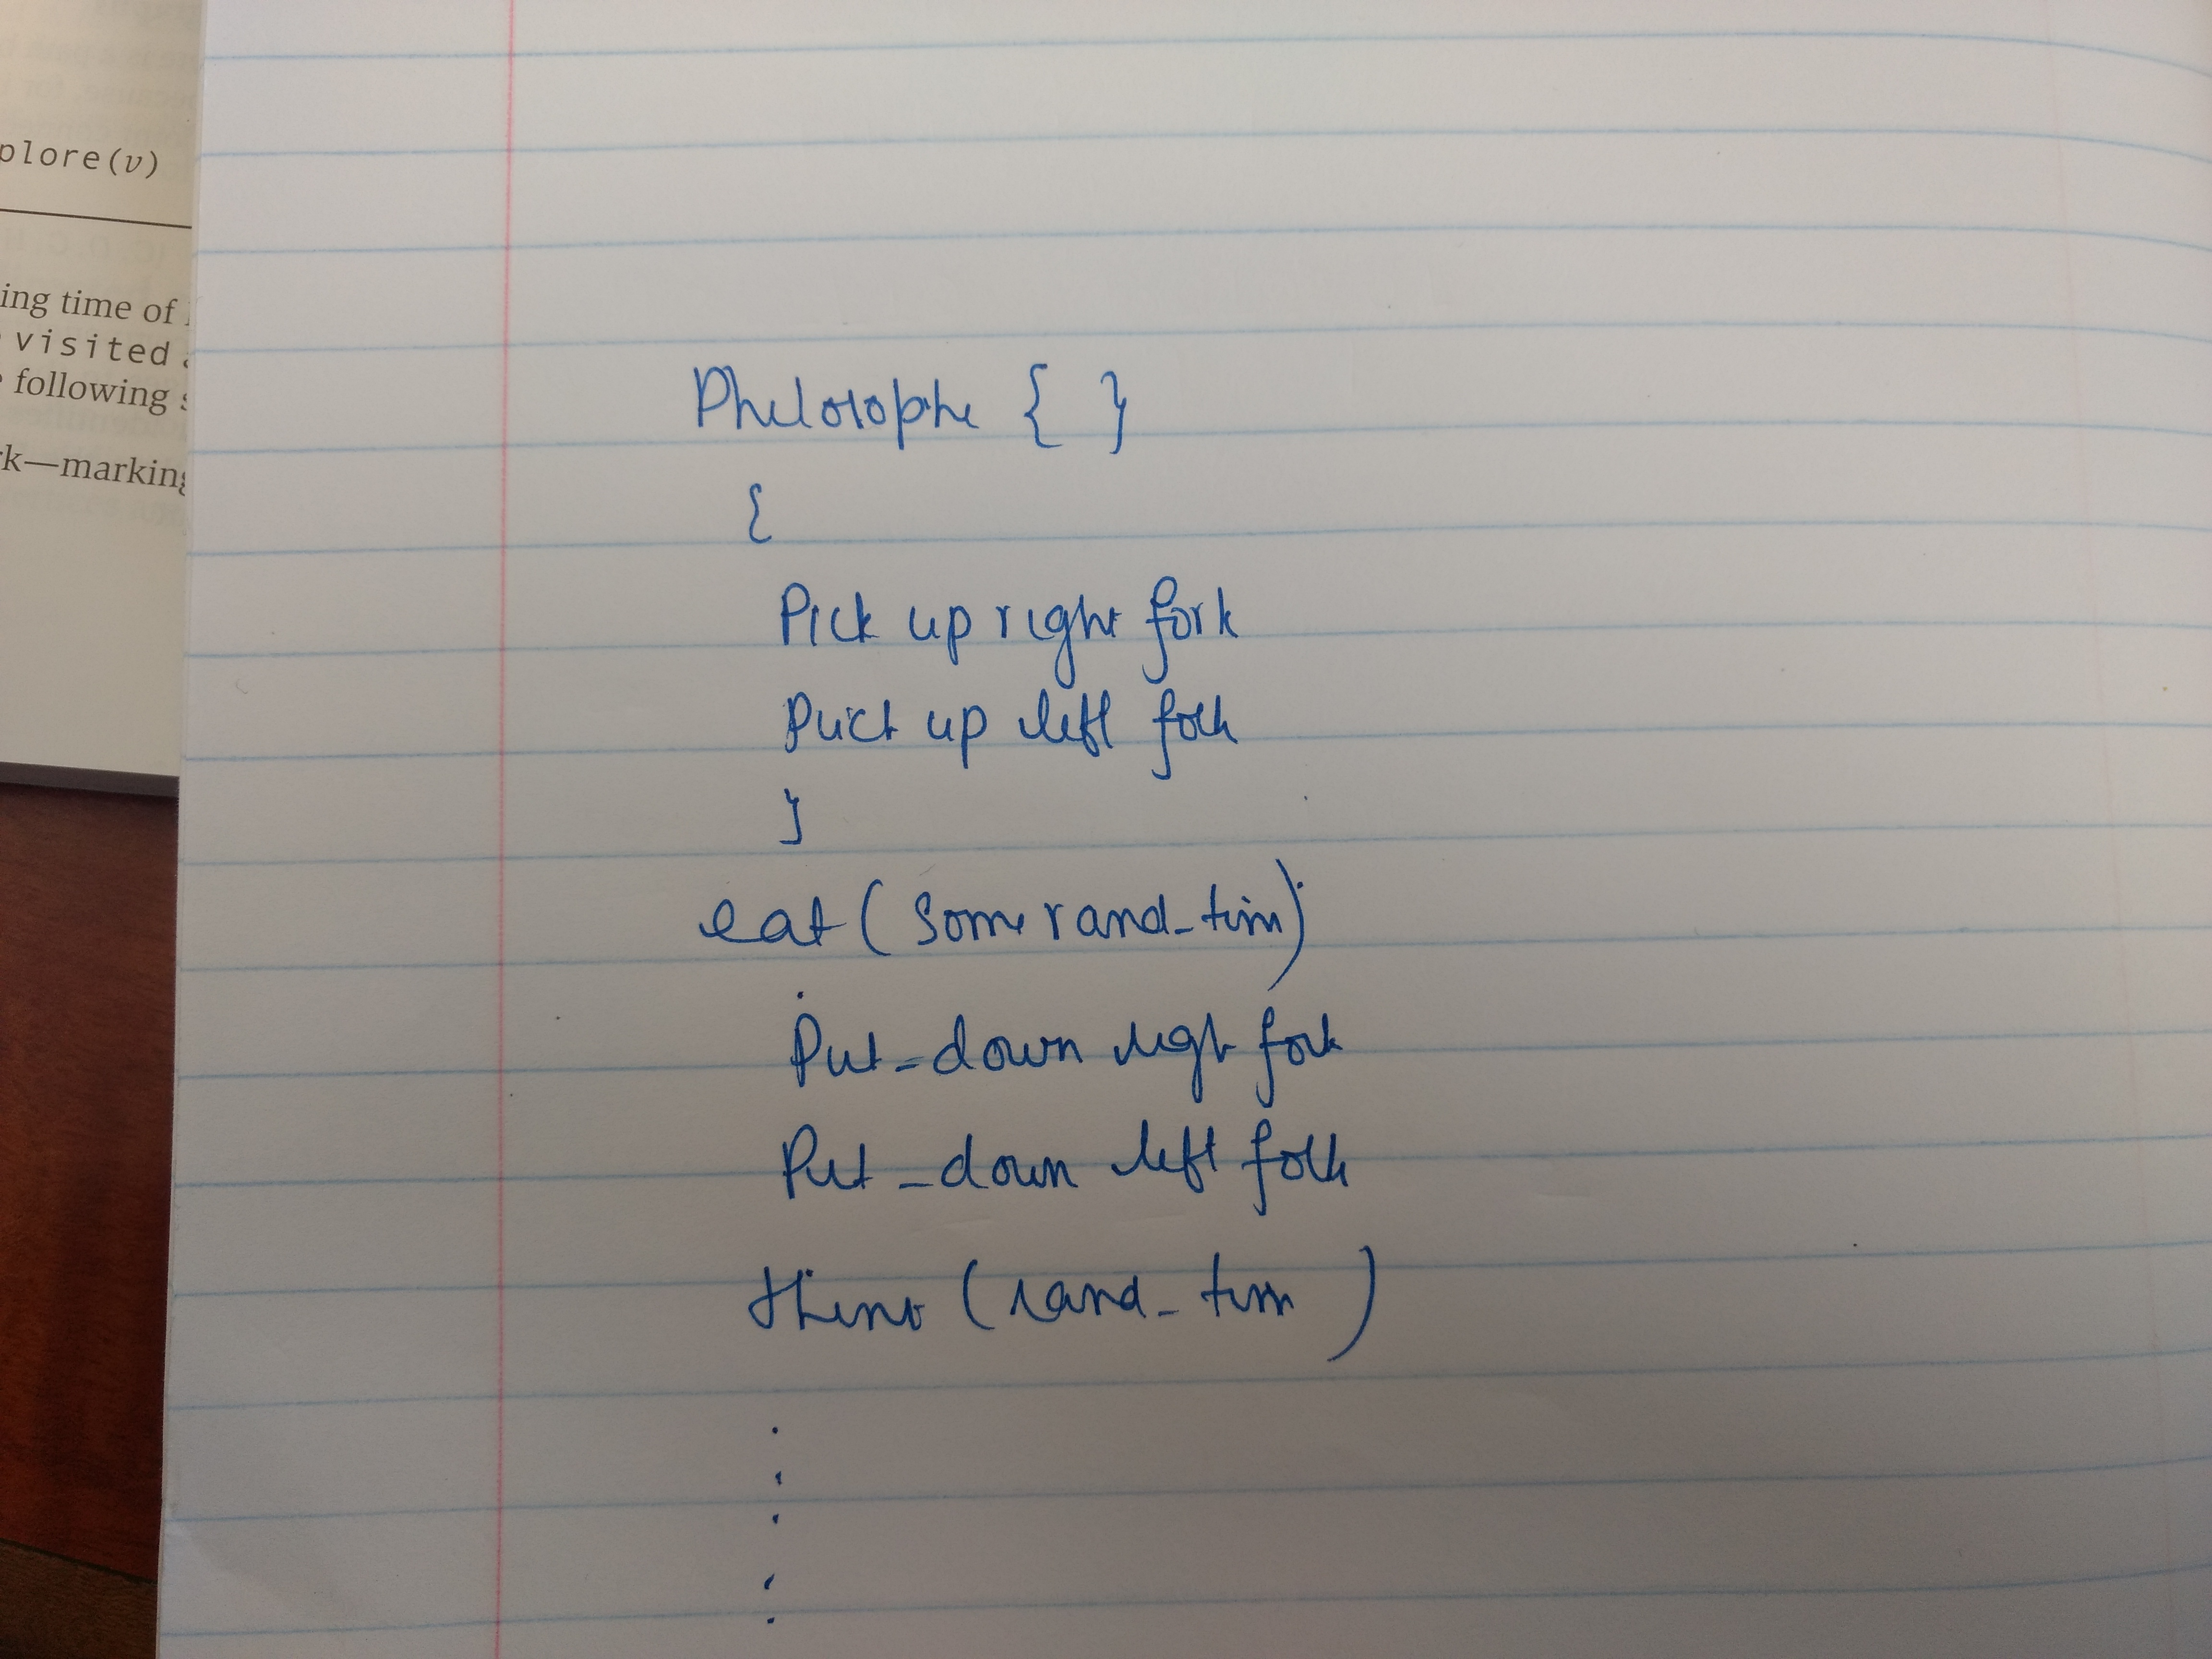 plore(v)
ing time of
visited
following
k—marking
Philosophe { }
{
Pick up right fork
Pick up left fork
}
eat ( some rand_tim)
Put_down right fork
Put_down left fork
think ( rand_tim )